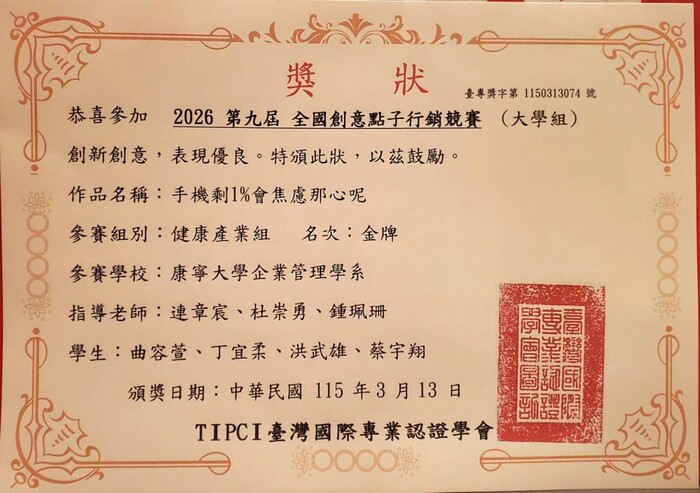 獎狀
臺專獎字第 1150313074 號
恭喜參加 2026 第九屆 全國創意點子行銷競賽 (大學組)
創新創意，表現優良。特頒此狀，以茲鼓勵。
作品名稱：手機剩1%會焦慮那心呢
參賽組別：健康產業組 名次：金牌
參賽學校：康寧大學企業管理學系
指導老師：連章宸、杜崇勇、鍾珮珊
學生：曲容萱、丁宜柔、洪武雄、蔡宇翔
頒獎日期：中華民國 115 年 3 月 13 日
TIPCI臺灣國際專業認證學會
臺灣國際
專業認證
學會圖記